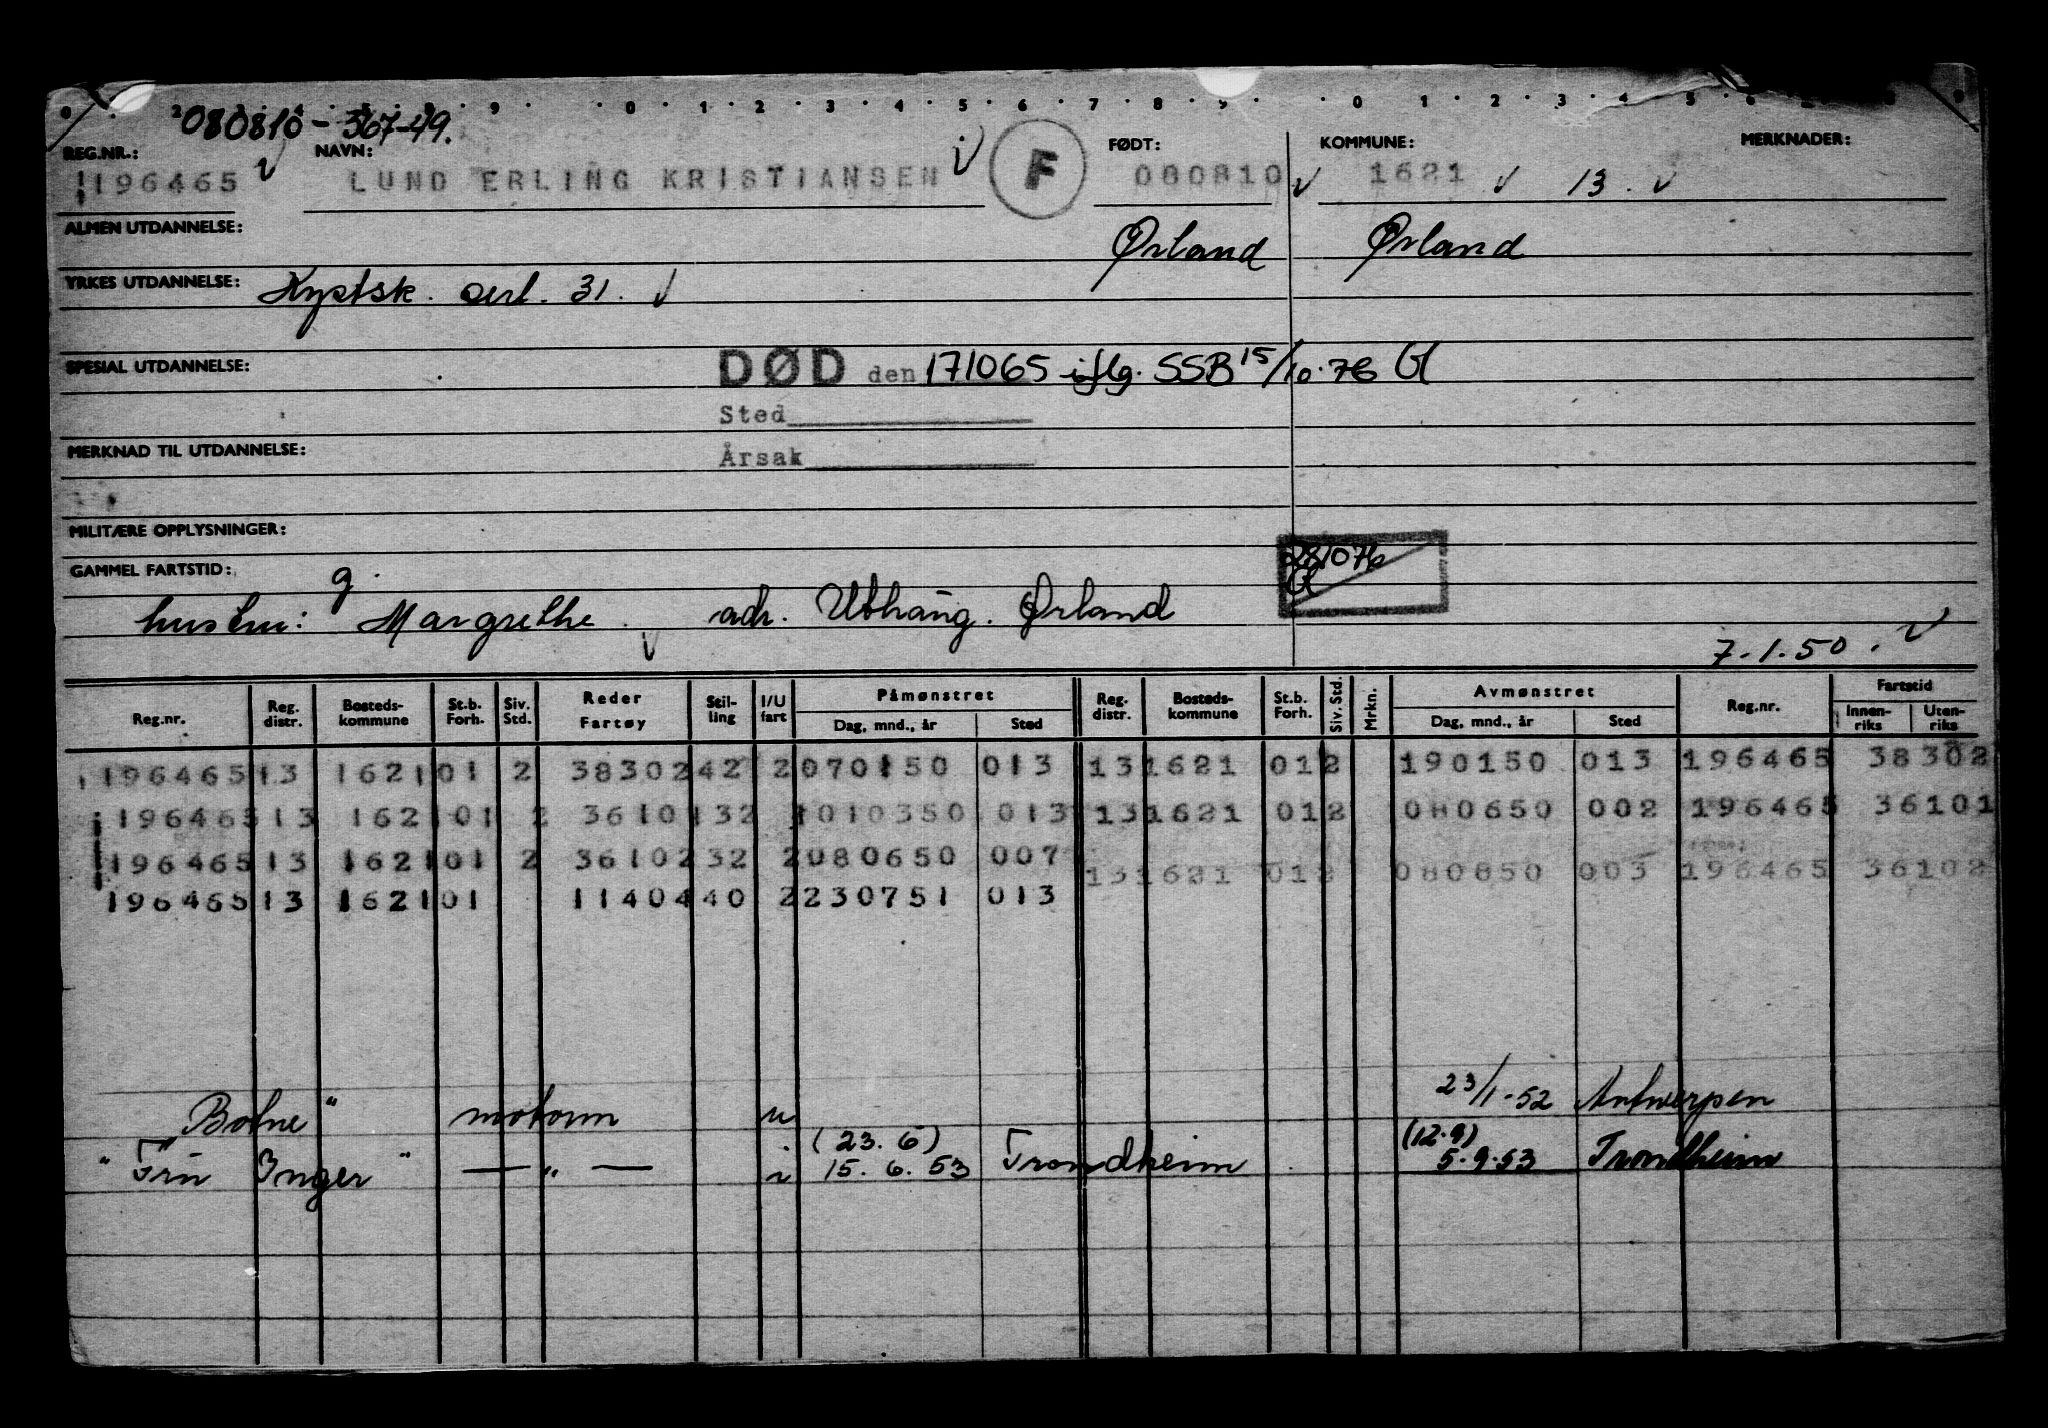 080810-36749.
REG.NR.: NAVN: FØDT: KOMMUNE: MERKNADER:
196465 LUND ERLING KRISTIANSEN F 080810 1621 13.
ALMEN UTDANNELSE: Ørland Ørland
YRKES UTDANNELSE: Kystsk. sert. 31.
SPESIAL UTDANNELSE: DØD den 171065 iflg. SSB 15/10.76
Sted
MERKNAD TIL UTDANNELSE: Årsak
MILITÆRE OPPLYSNINGER:
281076
GAMMEL FARTSTID: g.
hustru: Margrethe adr. Uthaug. Ørland
7.1.50.
Reg.nr. Reg. distr. Bosteds-kommune St.b. Forh. Siv. Std. Reder Fartøy Stil-ling I/U fart Påmønstret Dag, mnd., år Sted Reg. distr. Bosteds-kommune St.b. Forh. Siv. Std. Mrkn. Avmønstret Dag, mnd., år Sted Reg.nr. Fartstid Innen-riks Uten-riks
196465 13 1621 01 2 38302 42 2 070150 013 13 1621 01 2 190150 013 196465 38302
196465 13 1621 01 2 36101 32 1 010350 013 13 1621 01 2 080650 002 196465 36101
196465 13 1621 01 2 36102 32 2 080650 007 13 1621 01 2 080850 003 196465 36102
196465 13 1621 01 11404 40 2 230751 013
"Bolne" motorm u 23/1-52 Antwerpen
(23.6) (12.9)
"Frü Inger" — " — i 15.6.53 Trondheim 5.9.53 Trondheim